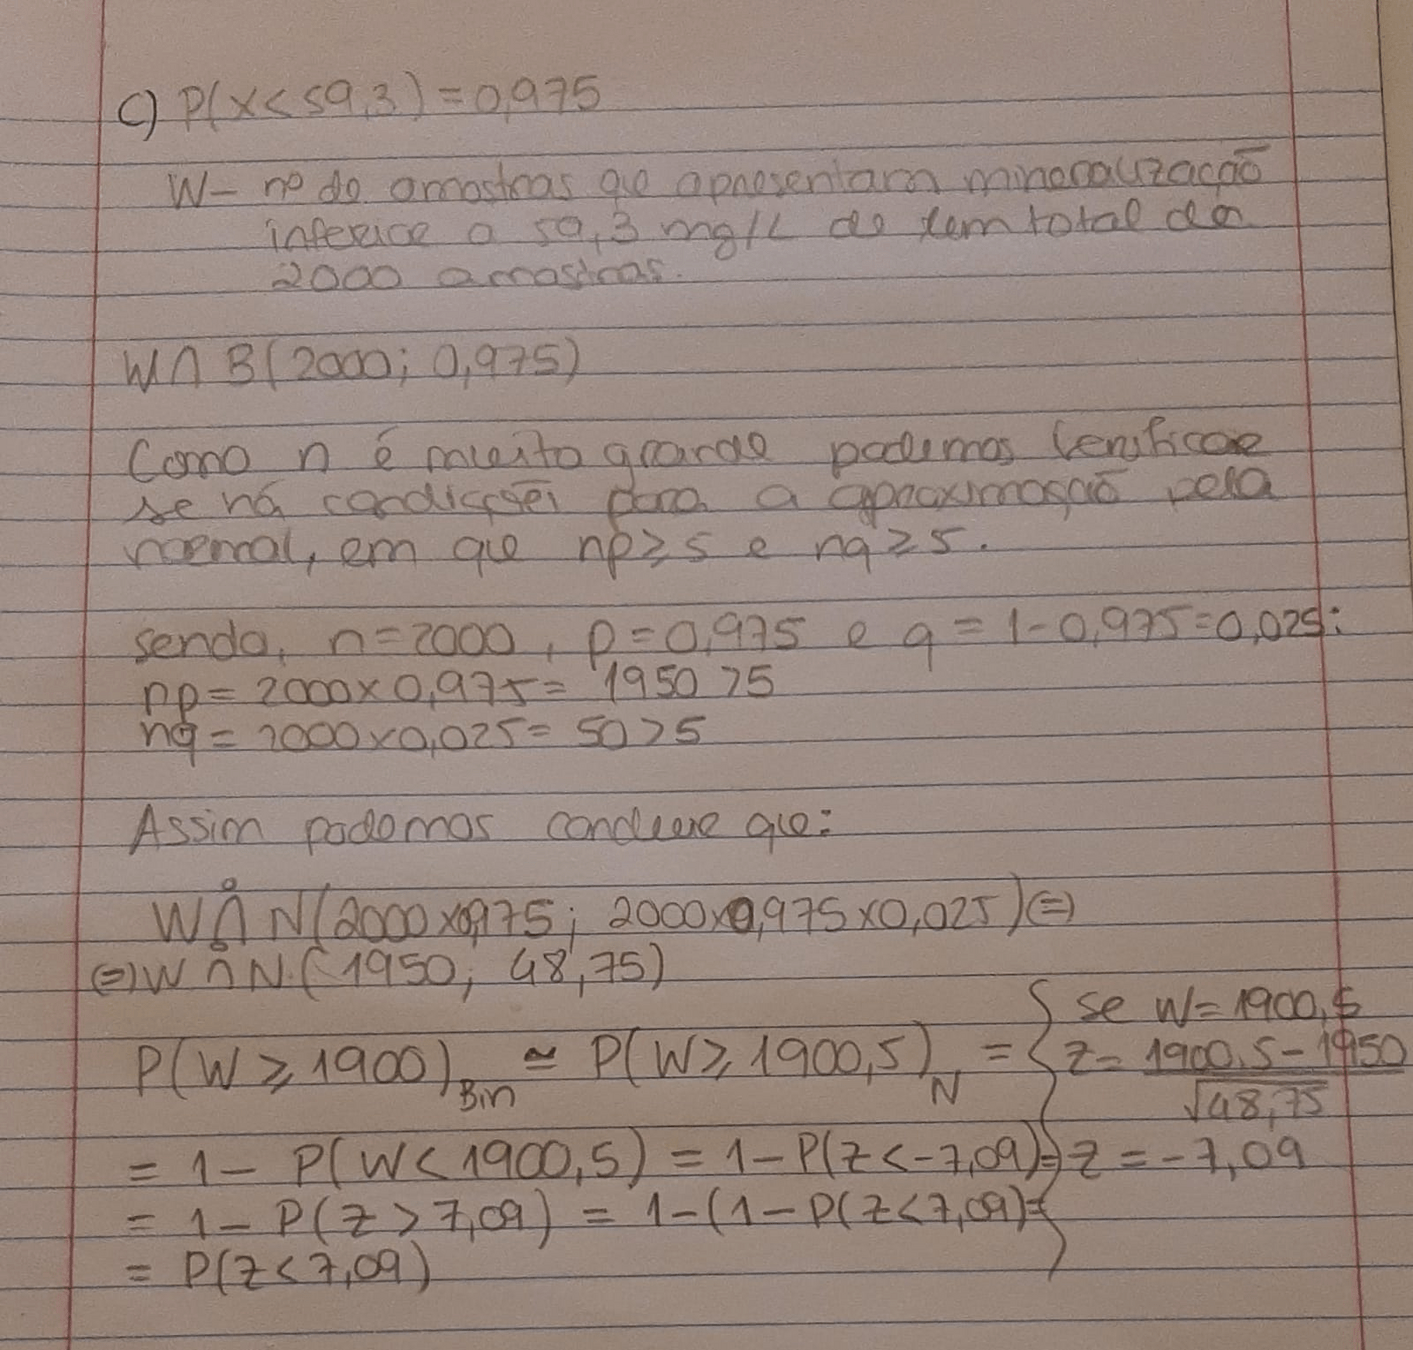 C) P(X<59,3)=0,975
W- nº de amostras que apresentam mineralização
inferior a 59,3 mg/L de um total de
2000 amostras.
W∩B(2000; 0,975)
Como n é muito grande podemos verificar
se há condições para a aproximação pela
normal, em que np≥5 e nq≥5.
sendo, n=2000, p=0,975 e q=1-0,975=0,025:
np=2000×0,975= 1950>5
nq=2000×0,025= 50>5
Assim podemos concluir que:
W∩̊N(2000×0,975; 2000×0,975×0,025)(=)
(=)W∩̊N(1950; 48,75)
P(W≥1900)Bin ≃ P(W≥1900,5)N = { se W=1900,5
z= (1900,5-1950)/√48,75
= 1- P(W<1900,5) = 1-P(Z<-7,09)= z=-7,09
= 1- P(Z>7,09) = 1-(1-P(Z<7,09)=
= P(Z<7,09)